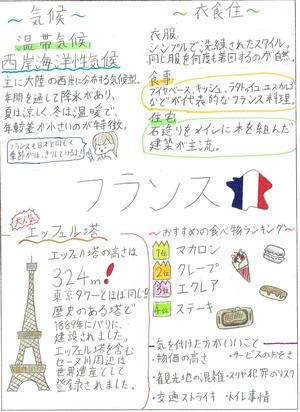 ～気候～
温帯気候
西岸海洋性気候
主に大陸の西岸に分布する気候型。
年間を通して降水があり、
夏は涼しく、冬は温暖で、
年較差が小さいのが特徴。
フランスも日本と同じく
季節がはっきりしているよ!
～衣食住～
衣服
シンプルで洗練されたスタイル。
同じ服を何度も着回すのが自然。
食事
ブイヤベース、キッシュ、ラタトゥイユ、エスカルゴ
などが代表的なフランス料理。
住宅
石造りをメインに木を組んだ
建築が主流。
フランス
大人気
エッフェル塔
エッフェル塔の高さは
324m!
東京タワーとほぼ同じ!
歴史のある塔で
1889年にパリに
建設されました。
エッフェル塔を含む
セーヌ川周辺は
世界遺産として
登録されました。
～おすすめの食べ物ランキング～
1位 マカロン
2位 クレープ
3位 エクレア
4位 ステーキ
～気を付けた方がいいこと～
・物価の高さ ・サービスのおそさ
・観光地の混雑 ・スリや犯罪のリスク
・交通ストライキ ・トイレ事情